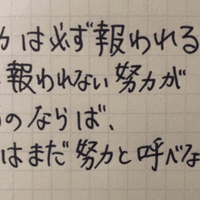 力は必ず報われる
報われない努力が
のならば、
はまだ努力と呼べな